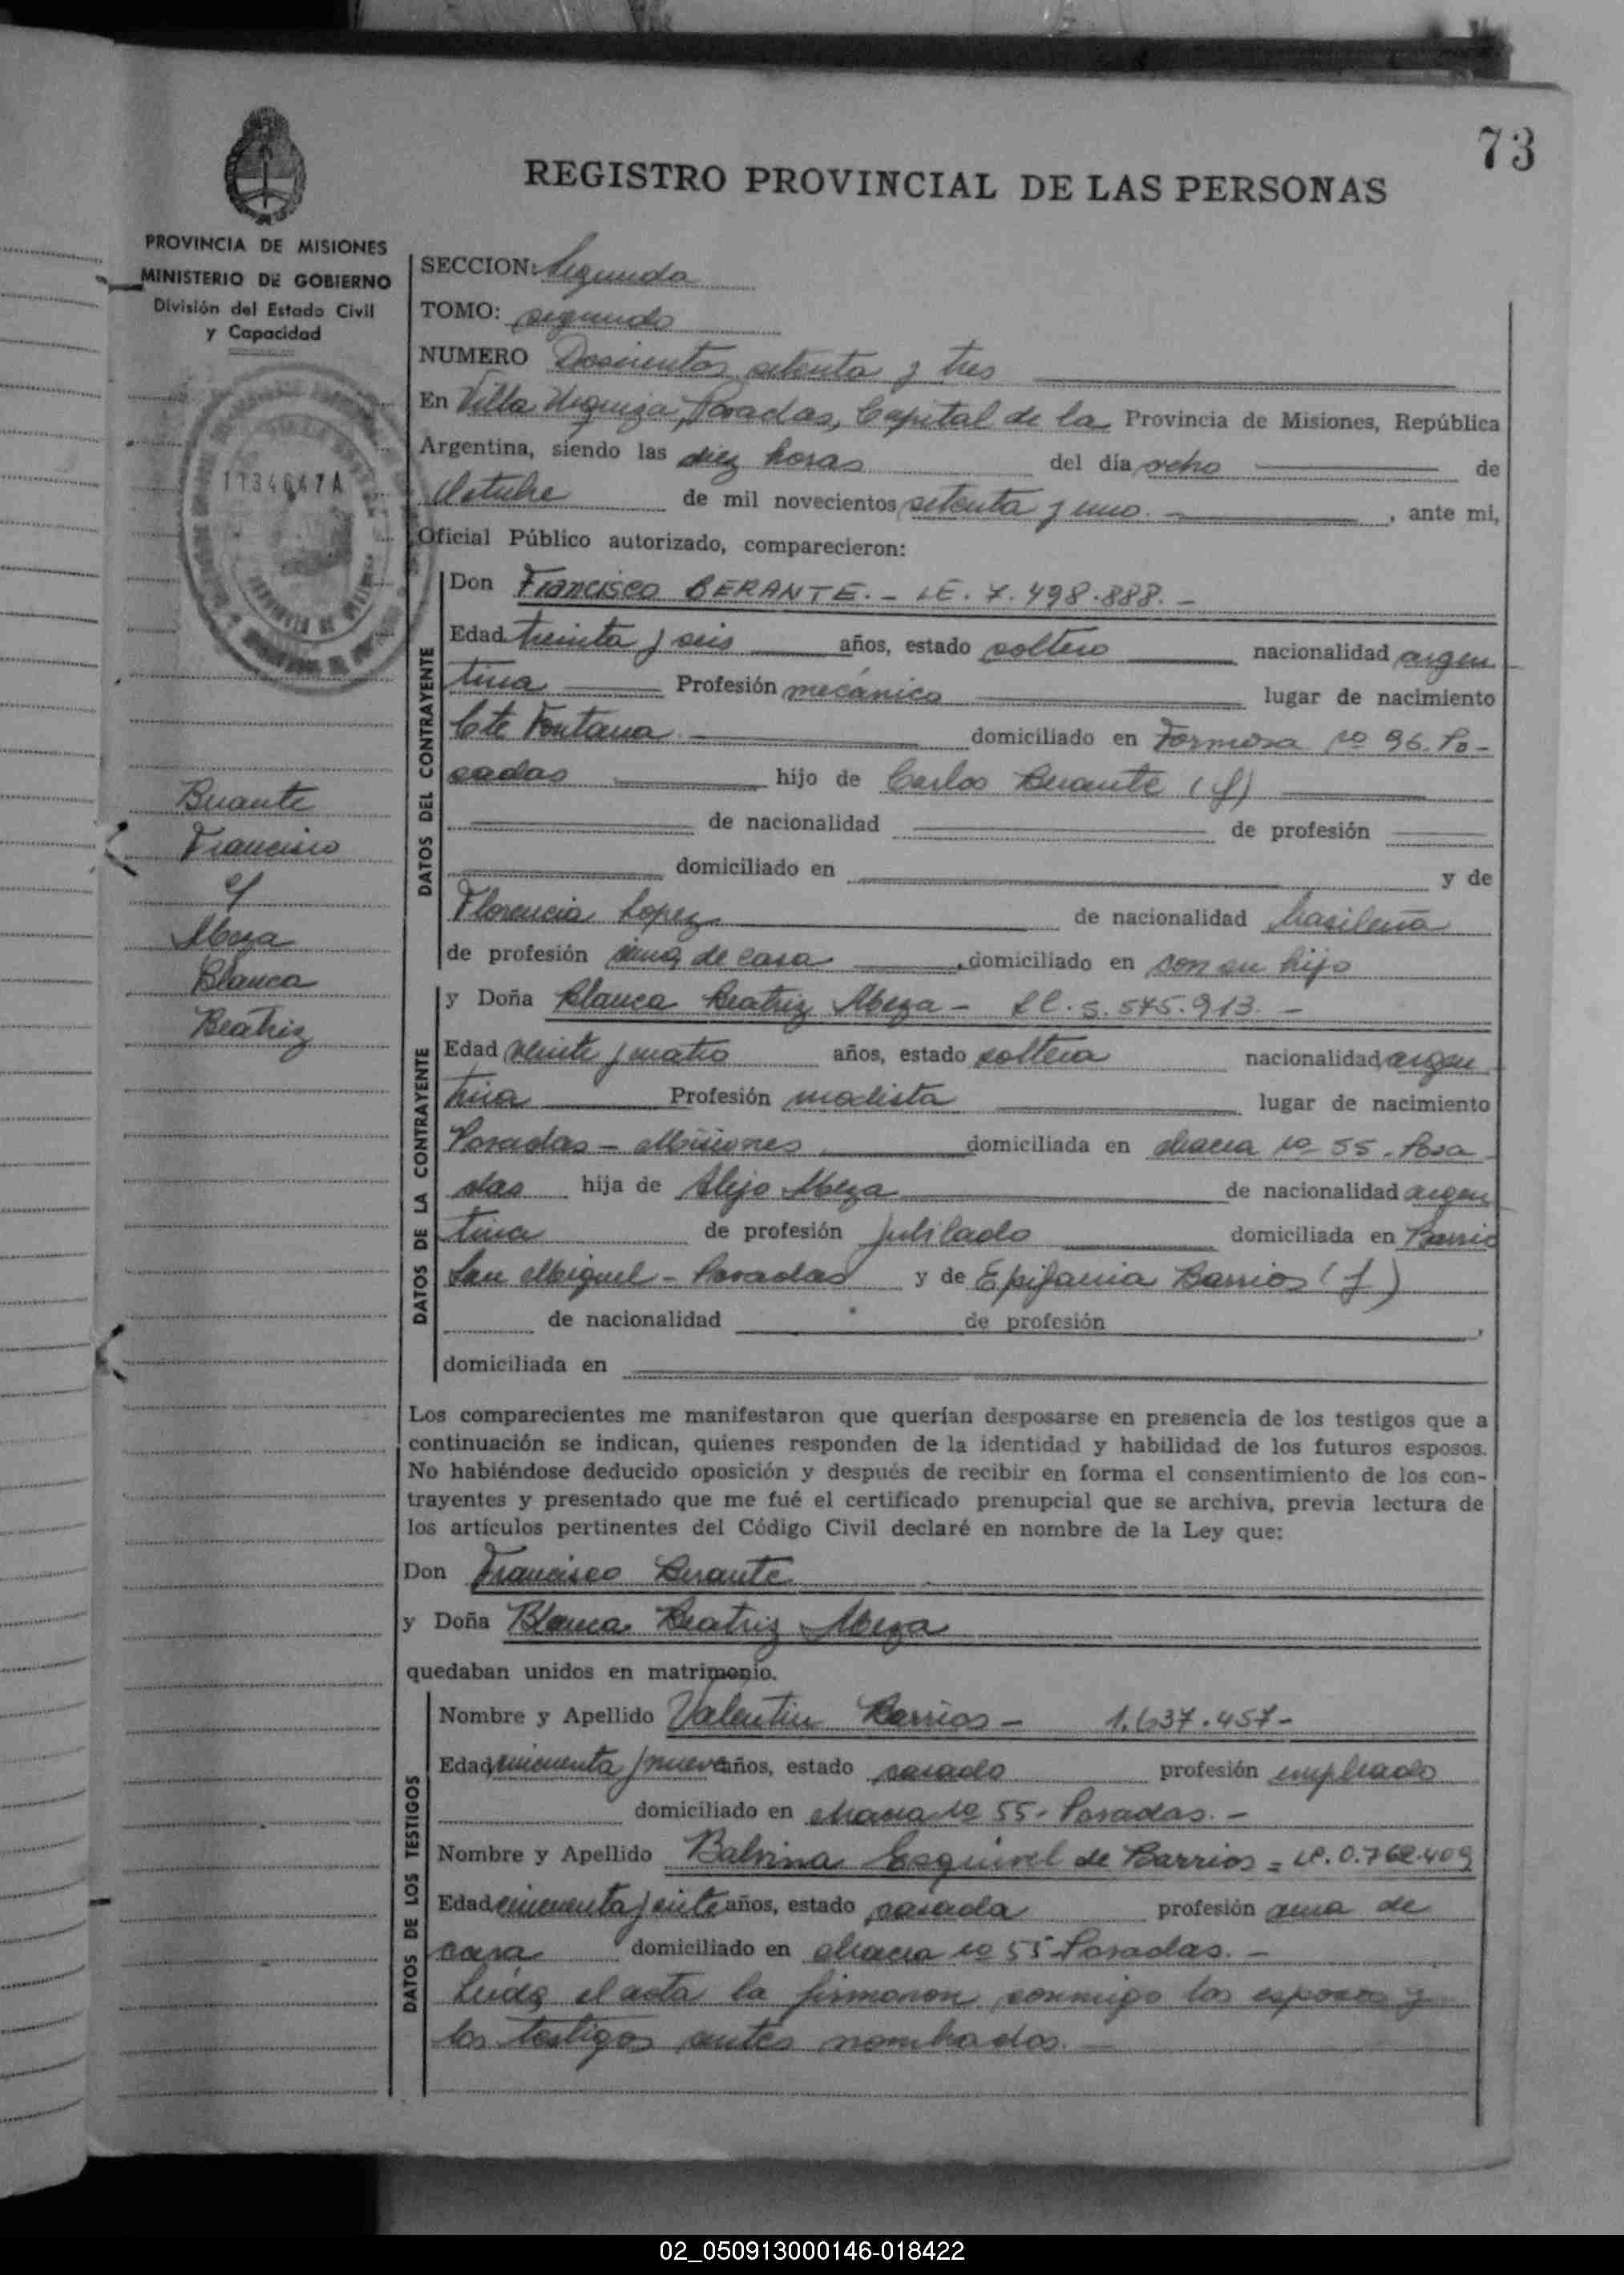 73
REGISTRO PROVINCIAL DE LAS PERSONAS
PROVINCIA DE MISIONES
MINISTERIO DE GOBIERNO
División del Estado Civil
y Capacidad
SECCION: Segunda
TOMO: segundo
NUMERO Doscientos setenta y tres
En Villa Urquiza, Posadas, Capital de la Provincia de Misiones, República
Argentina, siendo las diez horas del día ocho de
Octubre de mil novecientos setenta y uno. , ante mi,
Oficial Público autorizado, comparecieron:
DATOS DEL CONTRAYENTE
Don Francisco BERANTE. - LE. 7.498.888. -
Edad treinta y seis años, estado soltero nacionalidad argen
tina Profesión mecánico lugar de nacimiento
Cte Fontana domiciliado en Formosa no 96. Po-
sadas hijo de Carlos Berante (f)
de nacionalidad de profesión
domiciliado en y de
Florencia Lopez de nacionalidad brasileña
de profesión ama de casa , domiciliado en con su hijo
DATOS DE LA CONTRAYENTE
y Doña Blanca Beatriz Meza - 5.575.913. -
Edad veinte y cuatro años, estado soltera nacionalidad argen
tina Profesión modista lugar de nacimiento
Posadas - Misiones domiciliada en chacra no 55. Posa
das hija de Alejo Meza de nacionalidad argen
tina de profesión jubilado domiciliada en Barrio
San Miguel - Posadas y de Epifania Barrios (f)
de nacionalidad de profesión
domiciliada en
Berante
Francisco
c/
Meza
Blanca
Beatriz
Los comparecientes me manifestaron que querían desposarse en presencia de los testigos que a
continuación se indican, quienes responden de la identidad y habilidad de los futuros esposos.
No habiéndose deducido oposición y después de recibir en forma el consentimiento de los con-
trayentes y presentado que me fué el certificado prenupcial que se archiva, previa lectura de
los artículos pertinentes del Código Civil declaré en nombre de la Ley que:
Don Francisco Berante
y Doña Blanca Beatriz Meza
quedaban unidos en matrimonio.
DATOS DE LOS TESTIGOS
Nombre y Apellido Valentin Barrios - 1.637.457-
Edad cincuenta y nueve años, estado casado profesión empleado
domiciliado en chacra no 55 - Posadas. -
Nombre y Apellido Balvina Esquivel de Barrios = 0.762.409
Edad cincuenta y siete años, estado casada profesión ama de
casa domiciliado en chacra no 55 Posadas. -
Leída el acta la firmaron conmigo los esposos y
los testigos antes nombrados.
02_050913000146-018422